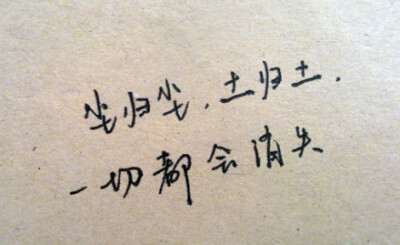 尘归尘.土归土.
一切都会消失